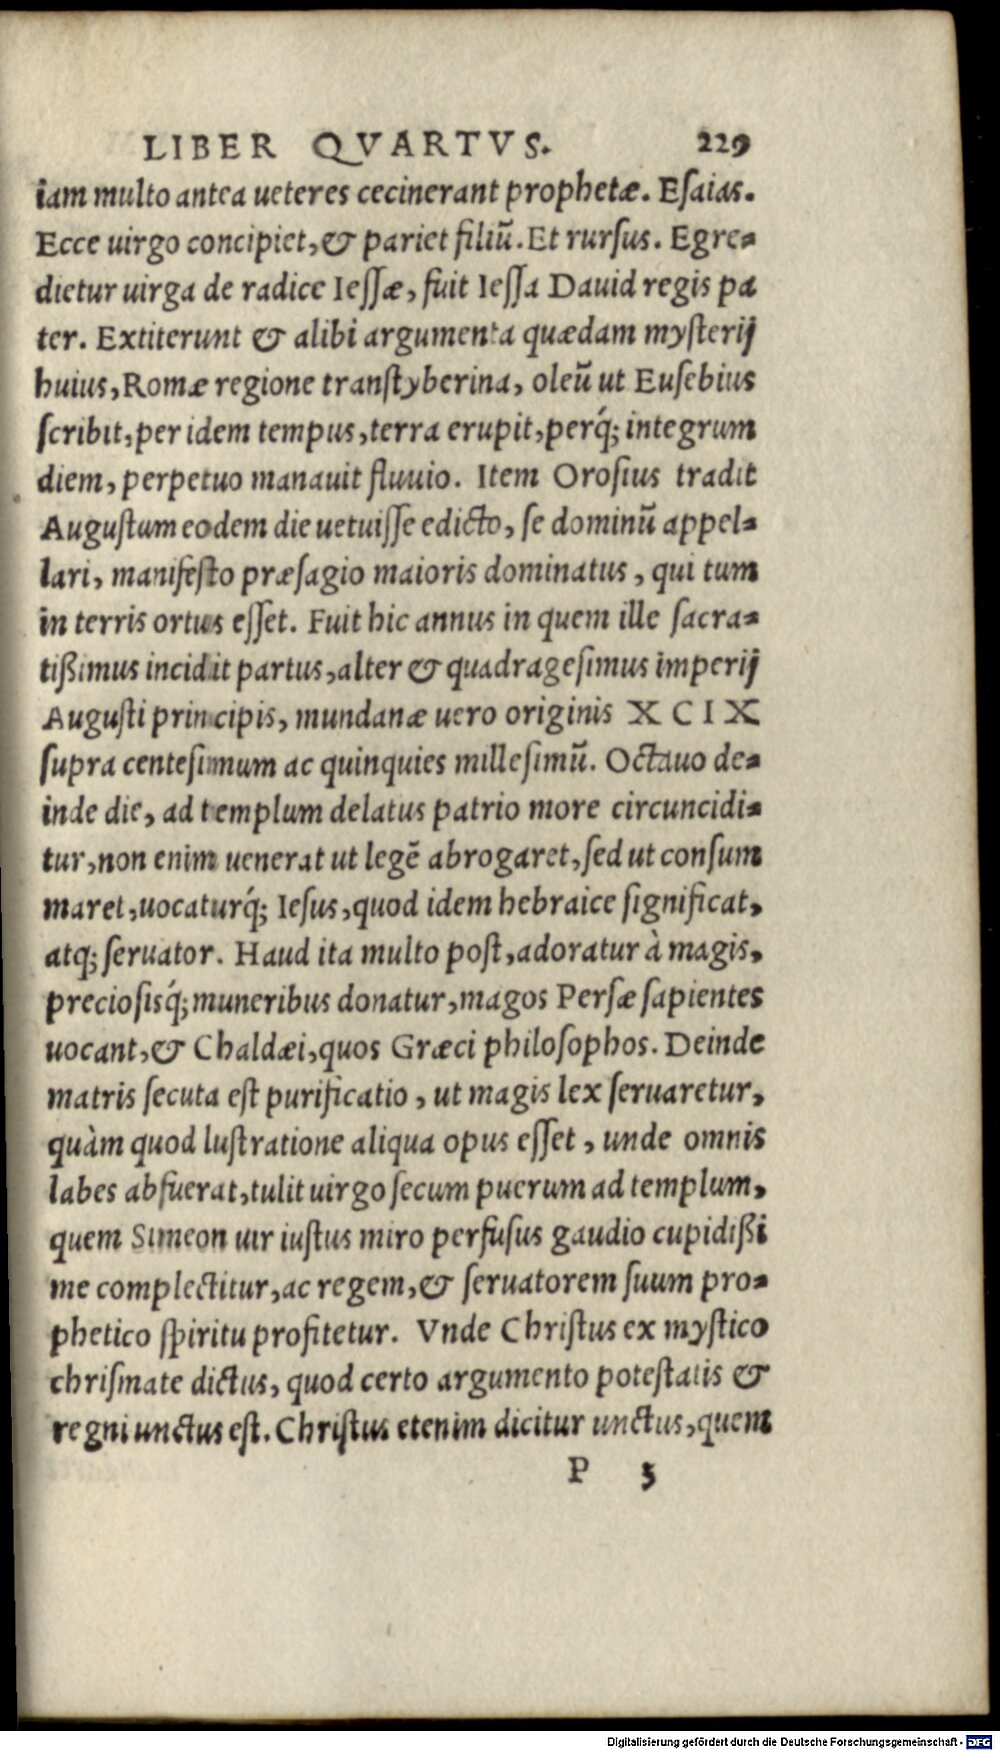 LIBER QVARTVS. 229
iam multo antea ueteres cecinerant prophetæ. Eſaias.
Ecce uirgo concipiet, & pariet filiũ. Et rurſus. Egre-
dietur uirga de radice Ieſſæ, fuit Ieſſa Dauid regis pa
ter. Extiterunt & alibi argumenta quædam myſterij
huius, Romæ regione tranſtyberina, oleũ ut Euſebius
ſcribit, per idem tempus, terra erupit, perq́; integrum
diem, perpetuo manauit fluuio. Item Oroſius tradit
Auguſtum eodem die uetuiſſe edicto, ſe dominũ appel-
lari, manifeſto præſagio maioris dominatus, qui tum
in terris ortus eſſet. Fuit hic annus in quem ille ſacra-
tißimus incidit partus, alter & quadrageſimus imperij
Auguſti principis, mundanæ uero originis XCIX
ſupra centeſimum ac quinquies milleſimũ. Octauo de-
inde die, ad templum delatus patrio more circuncidi-
tur, non enim uenerat ut legẽ abrogaret, ſed ut conſum
maret, uocaturq́; Ieſus, quod idem hebraice ſignificat,
atq; ſeruator. Haud ita multo poſt, adoratur à magis,
precioſisq́; muneribus donatur, magos Perſæ ſapientes
uocant, & Chaldæi, quos Græci philoſophos. Deinde
matris ſecuta eſt purificatio, ut magis lex ſeruaretur,
quàm quod luſtratione aliqua opus eſſet, unde omnis
labes abfuerat, tulit uirgo ſecum puerum ad templum,
quem Simeon uir iuſtus miro perfuſus gaudio cupidißi
me complectitur, ac regem, & ſeruatorem ſuum pro-
phetico ſpiritu profitetur. Vnde Chriſtus ex myſtico
chriſmate dictus, quod certo argumento poteſtatis &
regni unctus eſt. Chriſtus etenim dicitur unctus, quem
P 3
Digitalisierung gefördert durch die Deutsche Forschungsgemeinschaft - DFG